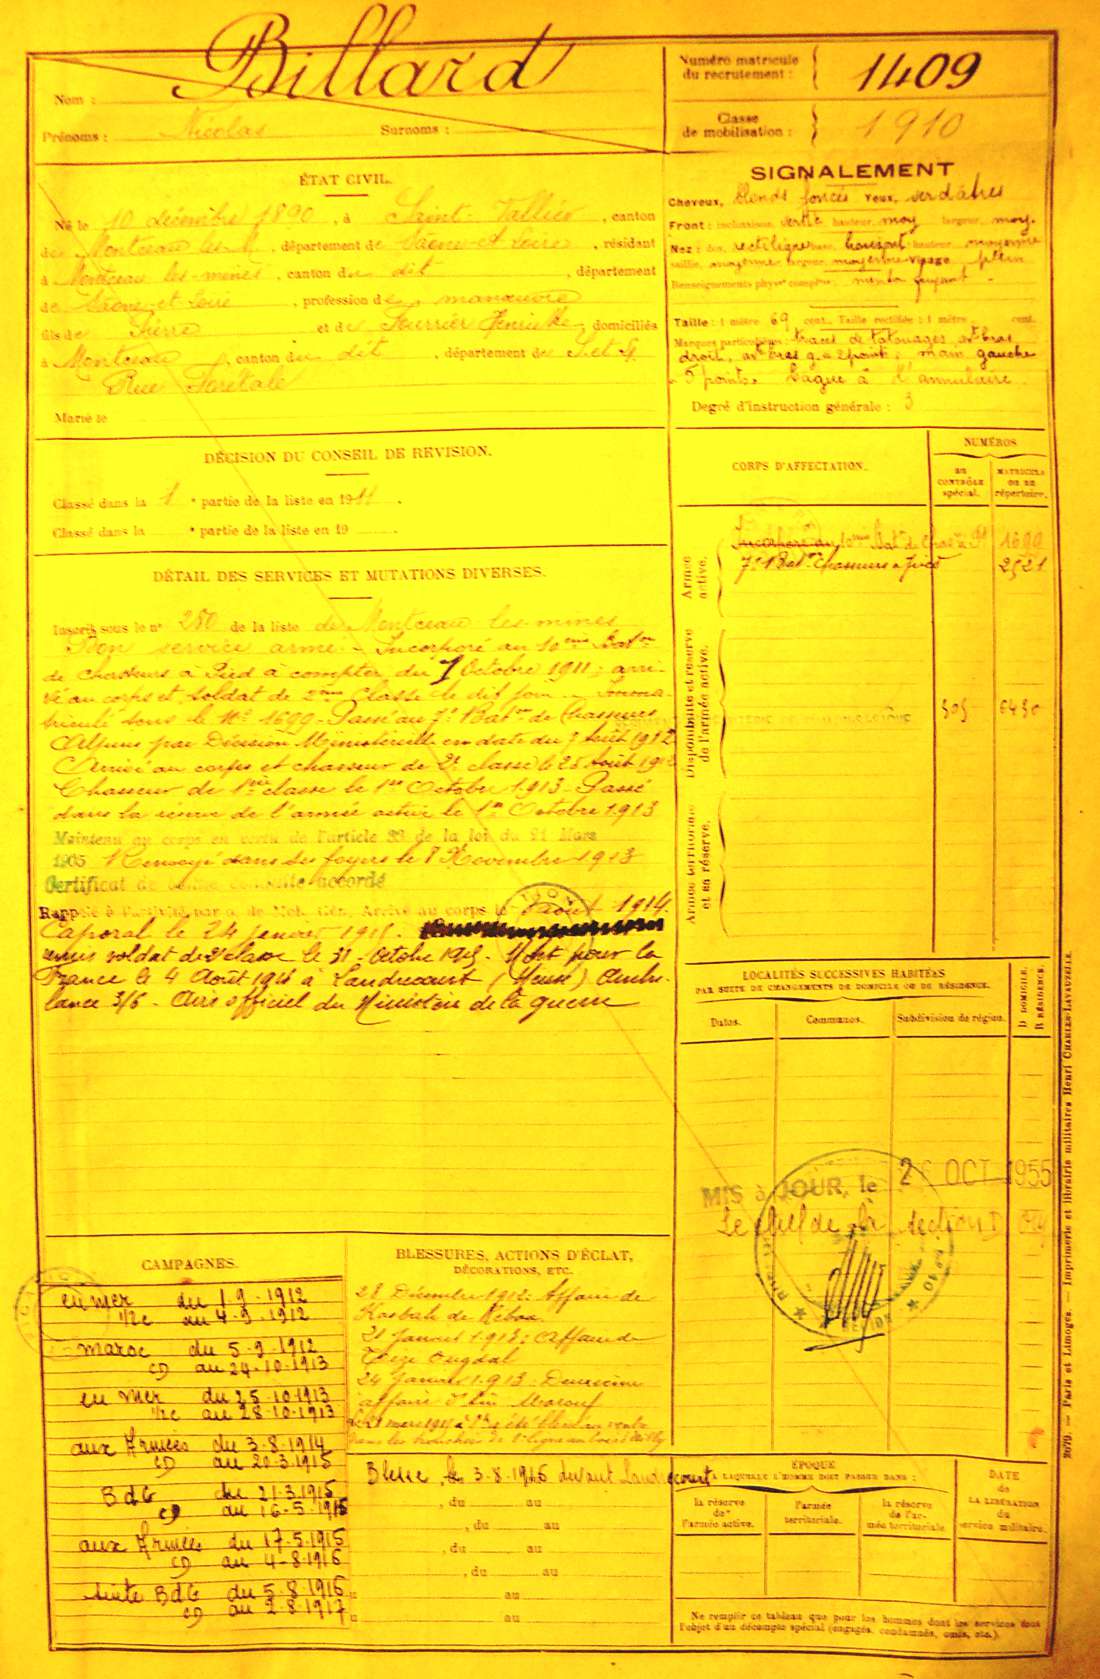 Nom : Billard
Prénoms : Nicolas Surnoms :
Numéro matricule
du recrutement : 1409
Classe
de mobilisation : 1910
ÉTAT CIVIL.
Né le 10 décembre 1890, à Saint-Vallier, canton
de Montceau les M., département de Saône-et-Loire, résidant
à Montceau-les-mines, canton du dit, département
de Saône-et-Loire, profession de manœuvre
fils de Pierre et de Fourrier, domiciliés
à Montceau, canton du dit, département de S et L
Rue
Marié le
SIGNALEMENT
Cheveux, blonds foncés Yeux, verdâtres
Front : inclinaison, vertle hauteur, moy largeur, moy.
Nez : dos, rectiligne base, horizont hauteur, moyenne
saillie, moyenne largeur, moyenne visage plein
Renseignements physion compléms : menton fuyant
Taille : 1 mètre 69 cent. Taille rectifiée : 1 mètre cent.
Marques particulières : traces de tatouages avt bras
droit, avt bras g. = 2 points ; main gauche
= 5 points. Bague à l'annulaire.
Degré d'instruction générale : 3
DÉCISION DU CONSEIL DE REVISION.
Classé dans la 1e partie de la liste en 1911.
Classé dans la e partie de la liste en 19
CORPS D'AFFECTATION.
NUMÉROS
AU
CONTRÔLE
spécial.
MATRICULE
OU AU
répertoire.
Armée
active.
Incorporé au 10me Bat. de Chas à Pd 1699
7e Baton Chasseurs à pied 2521
Disponibilité et réserve
de l'armée active.
Armée territoriale
et sa réserve.
DÉTAIL DES SERVICES ET MUTATIONS DIVERSES.
Inscrit sous le no 250 de la liste de Montceau les mines
Bon service armé. Incorporé au 10me Baton
de chasseurs à Pied à compter du 7 Octobre 1911, arri-
vé au corps et soldat de 2me Classe le dit jour. Imma-
triculé sous le No 1699 - Passé au 7e Baton de Chasseurs
Alpins par Décision Ministérielle en date du 9 Août 1912
Arrivé au corps et chasseur de 2e classe le 25 Août 1912
Chasseur de 1re classe le 1er Octobre 1913 - Passé
dans la réserve de l'armée active le 1er Octobre 1913
Maintenu au corps en vertu de l'article 33 de la loi du 21 Mars
1905 Renvoyé dans ses foyers le 8 Novembre 1913
Certificat de bonne conduite accordé
Rappelé à l'activité par o. de Mob. Gén. Arrivé au corps le août 1914.
Caporal le 24 janvier 1915.
remis soldat de 2e classe le 31 Octobre 1915 - Mort pour la
France le 4 Août 1916 à Landrecourt (Meuse) Ambu-
lance 3/6 - Avis officiel du Ministère de la guerre
LOCALITÉS SUCCESSIVES HABITÉES
PAR SUITE DE CHANGEMENTS DE DOMICILE OU DE RÉSIDENCE.
Dates.
Communes.
Subdivision de région.
D DOMICILE.
R RÉSIDENCE.
MIS à JOUR, le 2 OCT 1955
Le Chef de la Section
CAMPAGNES.
en mer du 1-9-1912
au 4-9-1912
maroc du 5-9-1912
au 24-10-1913
en mer du 25-10-1913
au 28-10-1913
aux Armées du 3-8-1914
au 20-3-1915
BdG du 21-3-1915
au 16-5-1915
aux Armées du 17-5-1915
au 4-8-1916
suite BdG du 5-8-1916
au 2-8-1917
BLESSURES, ACTIONS D'ÉCLAT,
DÉCORATIONS, ETC.
28 Décembre 1912. Affaire de
Kasbah de
21 Janvier 1913 ; Affaire de
24 Janvier 1913 : Deuxième
affaire
Blessé le 3-8-1916 devant Landrecourt
, du au
, du au
, du au
, du au
au
au
ÉPOQUE
A LAQUELLE L'HOMME DOIT PASSER DANS :
la réserve
de
l'armée active.
l'armée
territoriale.
la réserve
de l'ar-
mée territoriale
DATE
de
LA LIBÉRATION
du
service militaire.
Ne remplir ce tableau que pour les hommes dont les services font
l'objet d'un décompte spécial (engagés, condamnés, omis, etc.).
2079. — Paris et Limoges. — Imprimerie et librairie militaires Henri CHARLES-LAVAUZELLE.